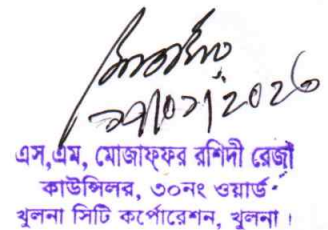 এস,এম, মোজাফ্ফর রশিদী রেজা
কাউন্সিলর, ৩০নং ওয়ার্ড
খুলনা সিটি কর্পোরেশন, খুলনা।